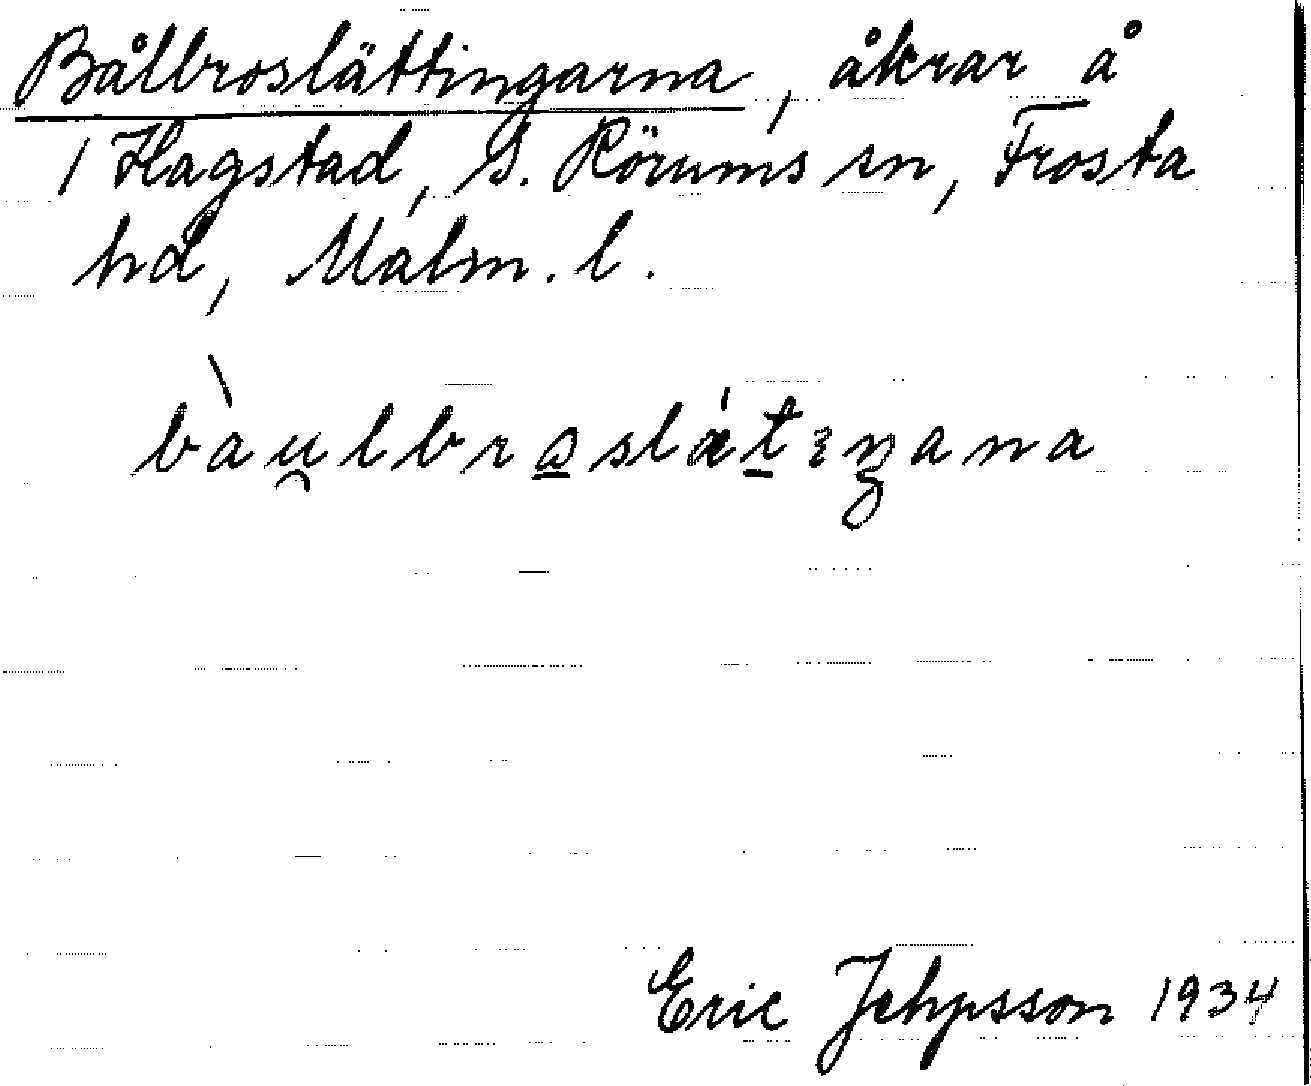 Bålbroslättingarna, åkrar å
1 Hagstad, S. Rörums sn, Frosta
hd, Malm. l.
bàu̯lbrɷslǽt̠ɩŋana
Eric Jehpsson 1934